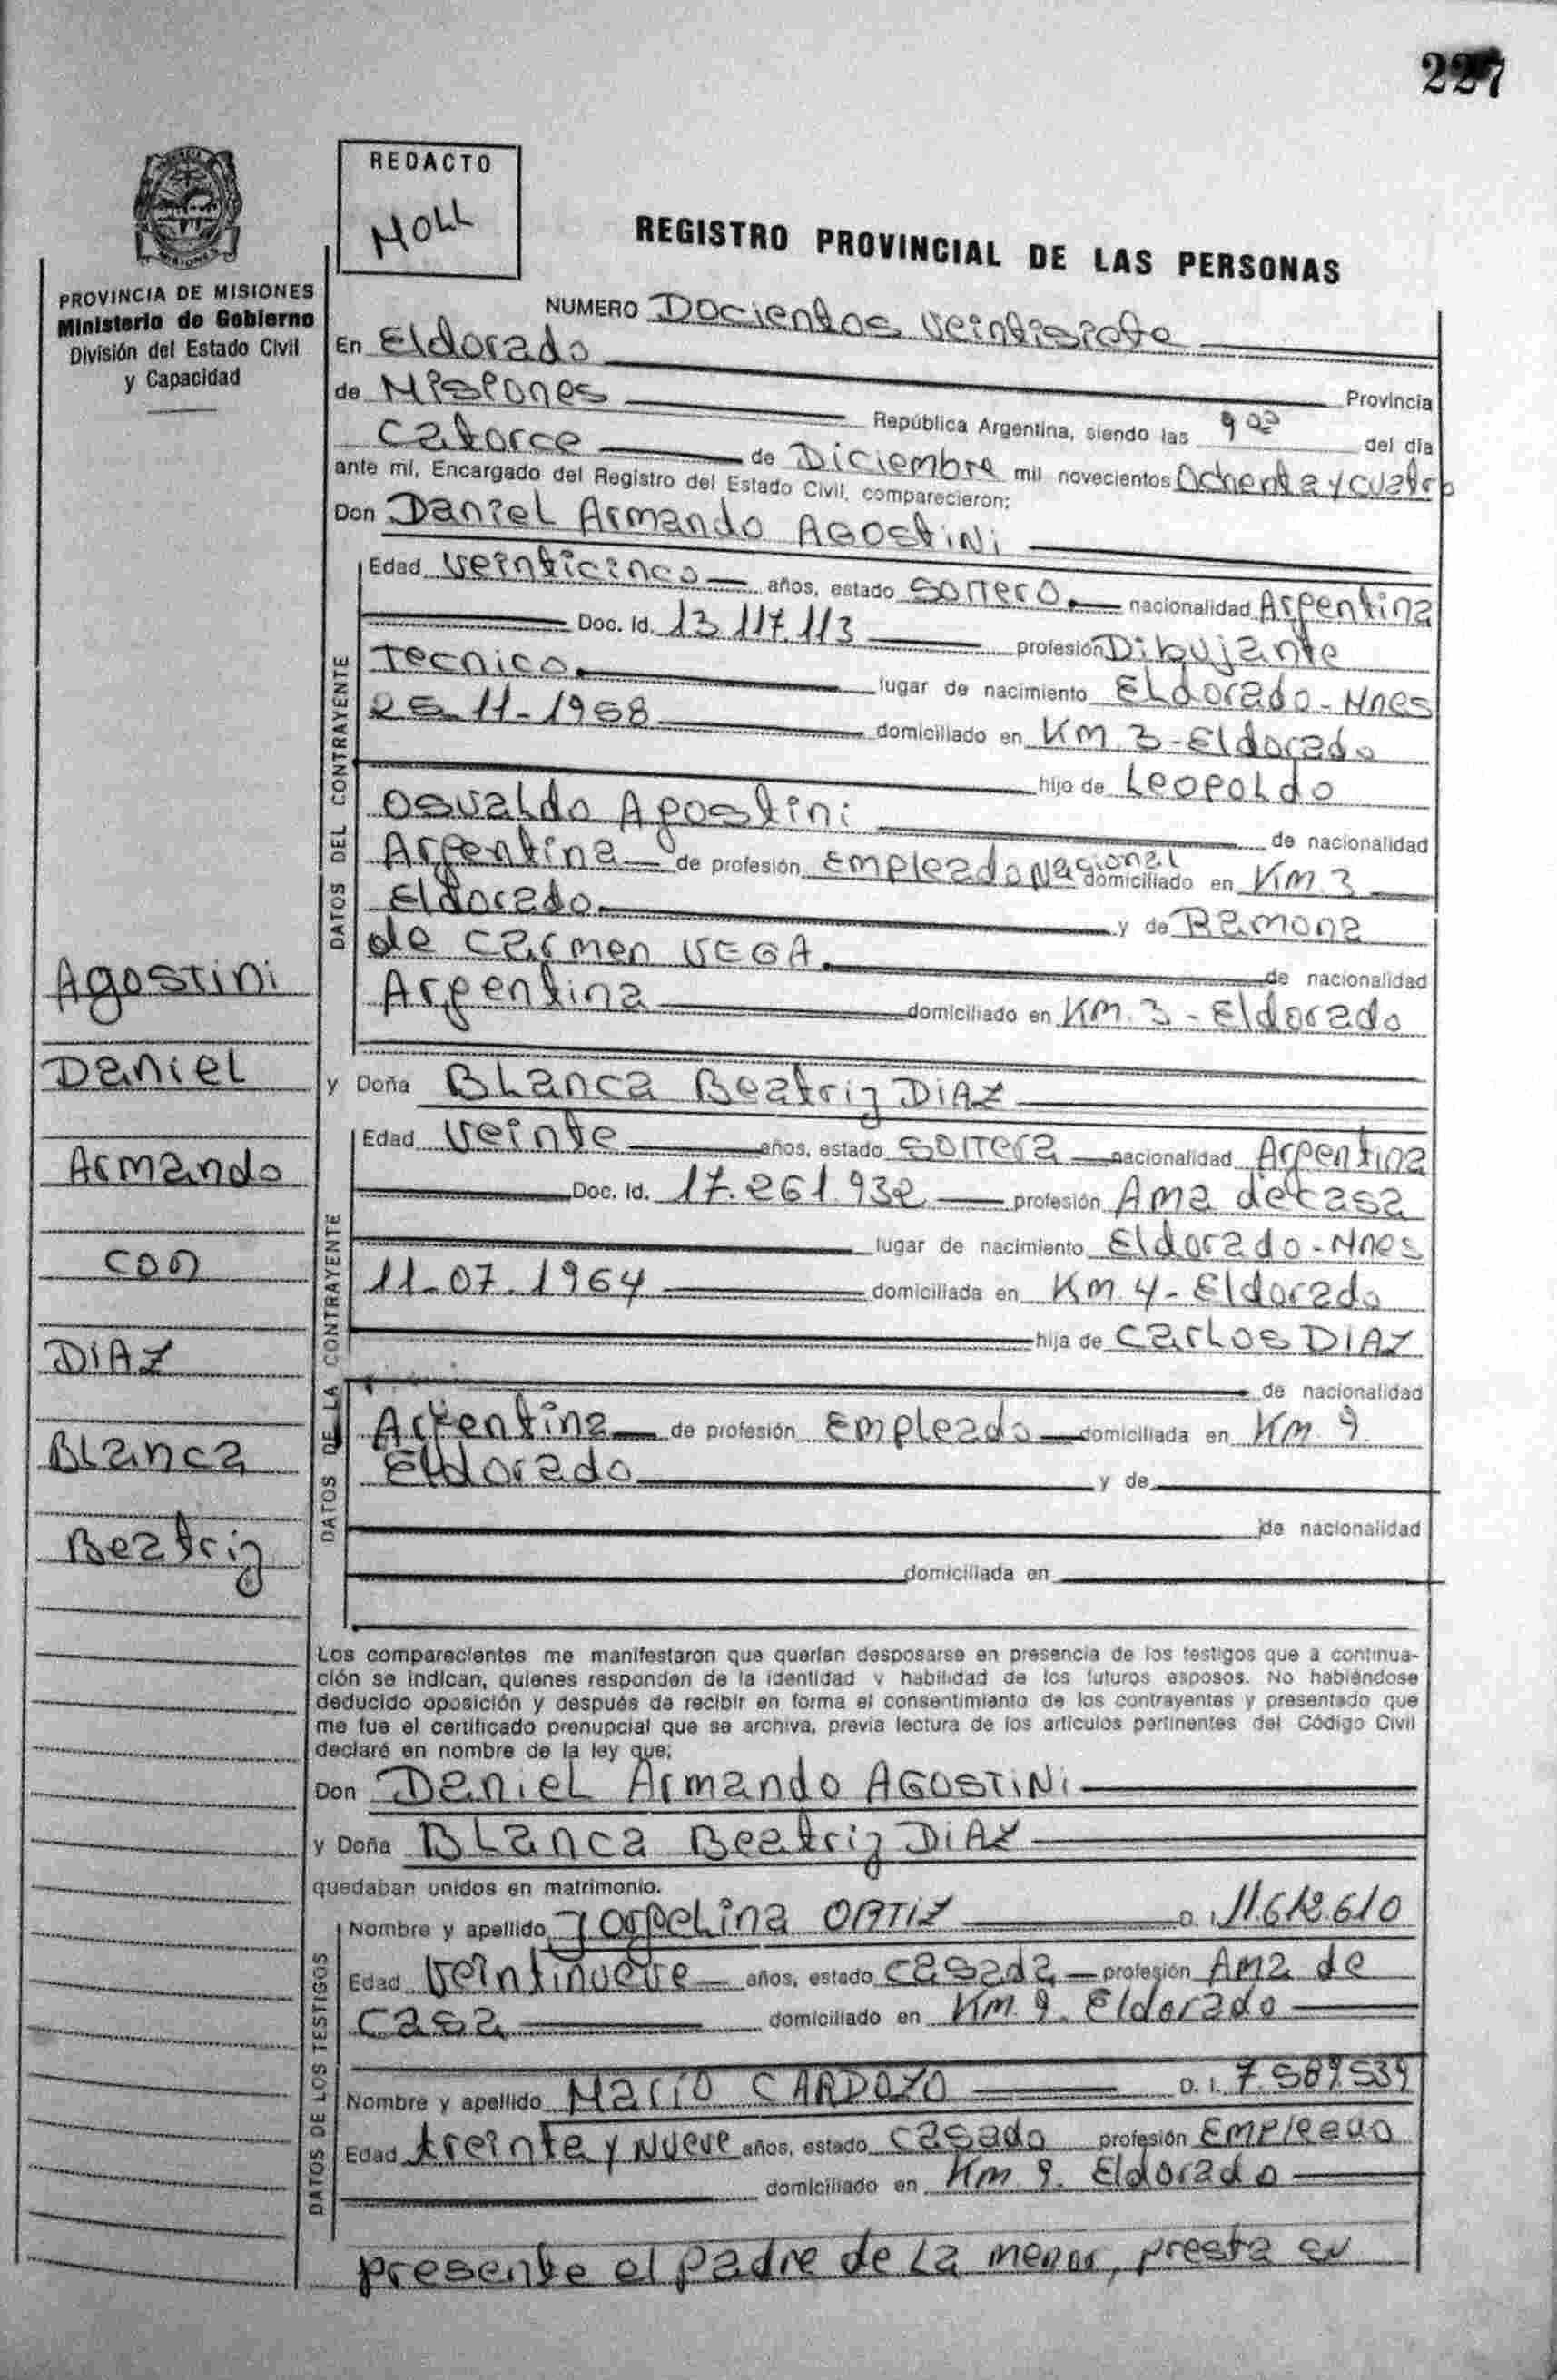 227
REDACTO
MOLL
REGISTRO PROVINCIAL DE LAS PERSONAS
PROVINCIA DE MISIONES
Ministerio de Gobierno
División del Estado Civil
y Capacidad
NUMERO Docientos veintisiete
En Eldorado
Provincia
de Misiones República Argentina, siendo las 9 00 del día
catorce de Diciembre mil novecientos Ochenta y cuatro
ante mí, Encargado del Registro del Estado Civil, comparecieron:
Don Daniel Armando AGOSTINI
DATOS DEL CONTRAYENTE
Edad veinticinco años, estado soltero nacionalidad Argentina
Doc. Id. 13.117.113 profesión Dibujante
Tecnico lugar de nacimiento Eldorado - Mnes
11-1958 domiciliado en Km. 3 - Eldorado
hijo de Leopoldo
Osvaldo Agostini de nacionalidad
Argentina de profesión Empleado Nacional domiciliado en Km. 3
Eldorado y de Ramona
de Carmen VEGA de nacionalidad
Argentina domiciliado en Km. 3 - Eldorado
y Doña Blanca Beatriz DIAZ
DATOS DE LA CONTRAYENTE
Edad veinte años, estado soltera nacionalidad Argentina
Doc. Id. 17.261.932 profesión Ama de casa
lugar de nacimiento Eldorado - Mnes
11-07.1964 domiciliada en Km. 4 - Eldorado
hija de Carlos DIAZ
de nacionalidad
Argentina de profesión Empleado domiciliada en Km. 9.
Eldorado y de
de nacionalidad
domiciliada en
Agostini
Daniel
Armando
con
DIAZ
Blanca
Beatriz
Los comparecientes me manifestaron que querían desposarse en presencia de los testigos que a continua-
ción se indican, quienes responden de la identidad y habilidad de los futuros esposos. No habiéndose
deducido oposición y después de recibir en forma el consentimiento de los contrayentes y presentado que
me fue el certificado prenupcial que se archiva, previa lectura de los artículos pertinentes del Código Civil
declaré en nombre de la ley que;
Don Daniel Armando AGOSTINI
y Doña Blanca Beatriz DIAZ
quedaban unidos en matrimonio.
DATOS DE LOS TESTIGOS
Nombre y apellido Jorgelina ORTIZ D. I. 11.612.610
Edad veintinueve años, estado casada profesión Ama de
casa domiciliado en Km. 9. Eldorado
Nombre y apellido Mario CARDOZO D. I. 7.589.539
Edad treinta y nueve años, estado casado profesión Empleado
domiciliado en Km. 9. Eldorado
presente el padre de la menor, presta su